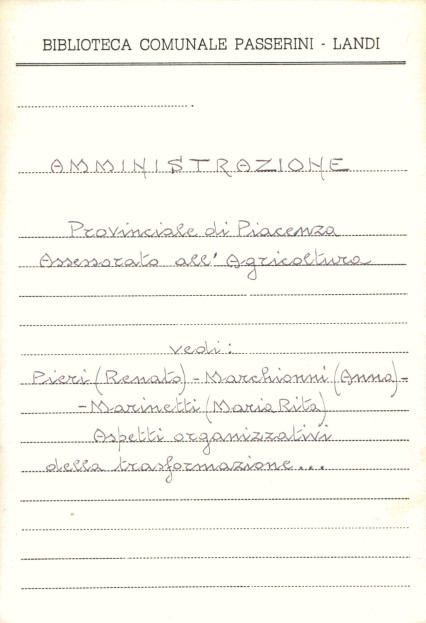 BIBLIOTECA COMUNALE PASSERINI - LANDI
AMMINISTRAZIONE
Provinciale di Piacenza
Assessorato all' Agricoltura
vedi:
Pieri (Renato) - Marchionni (Anna) -
- Marinetti (Maria Rita)
Aspetti organizzativi
della trasformazione...